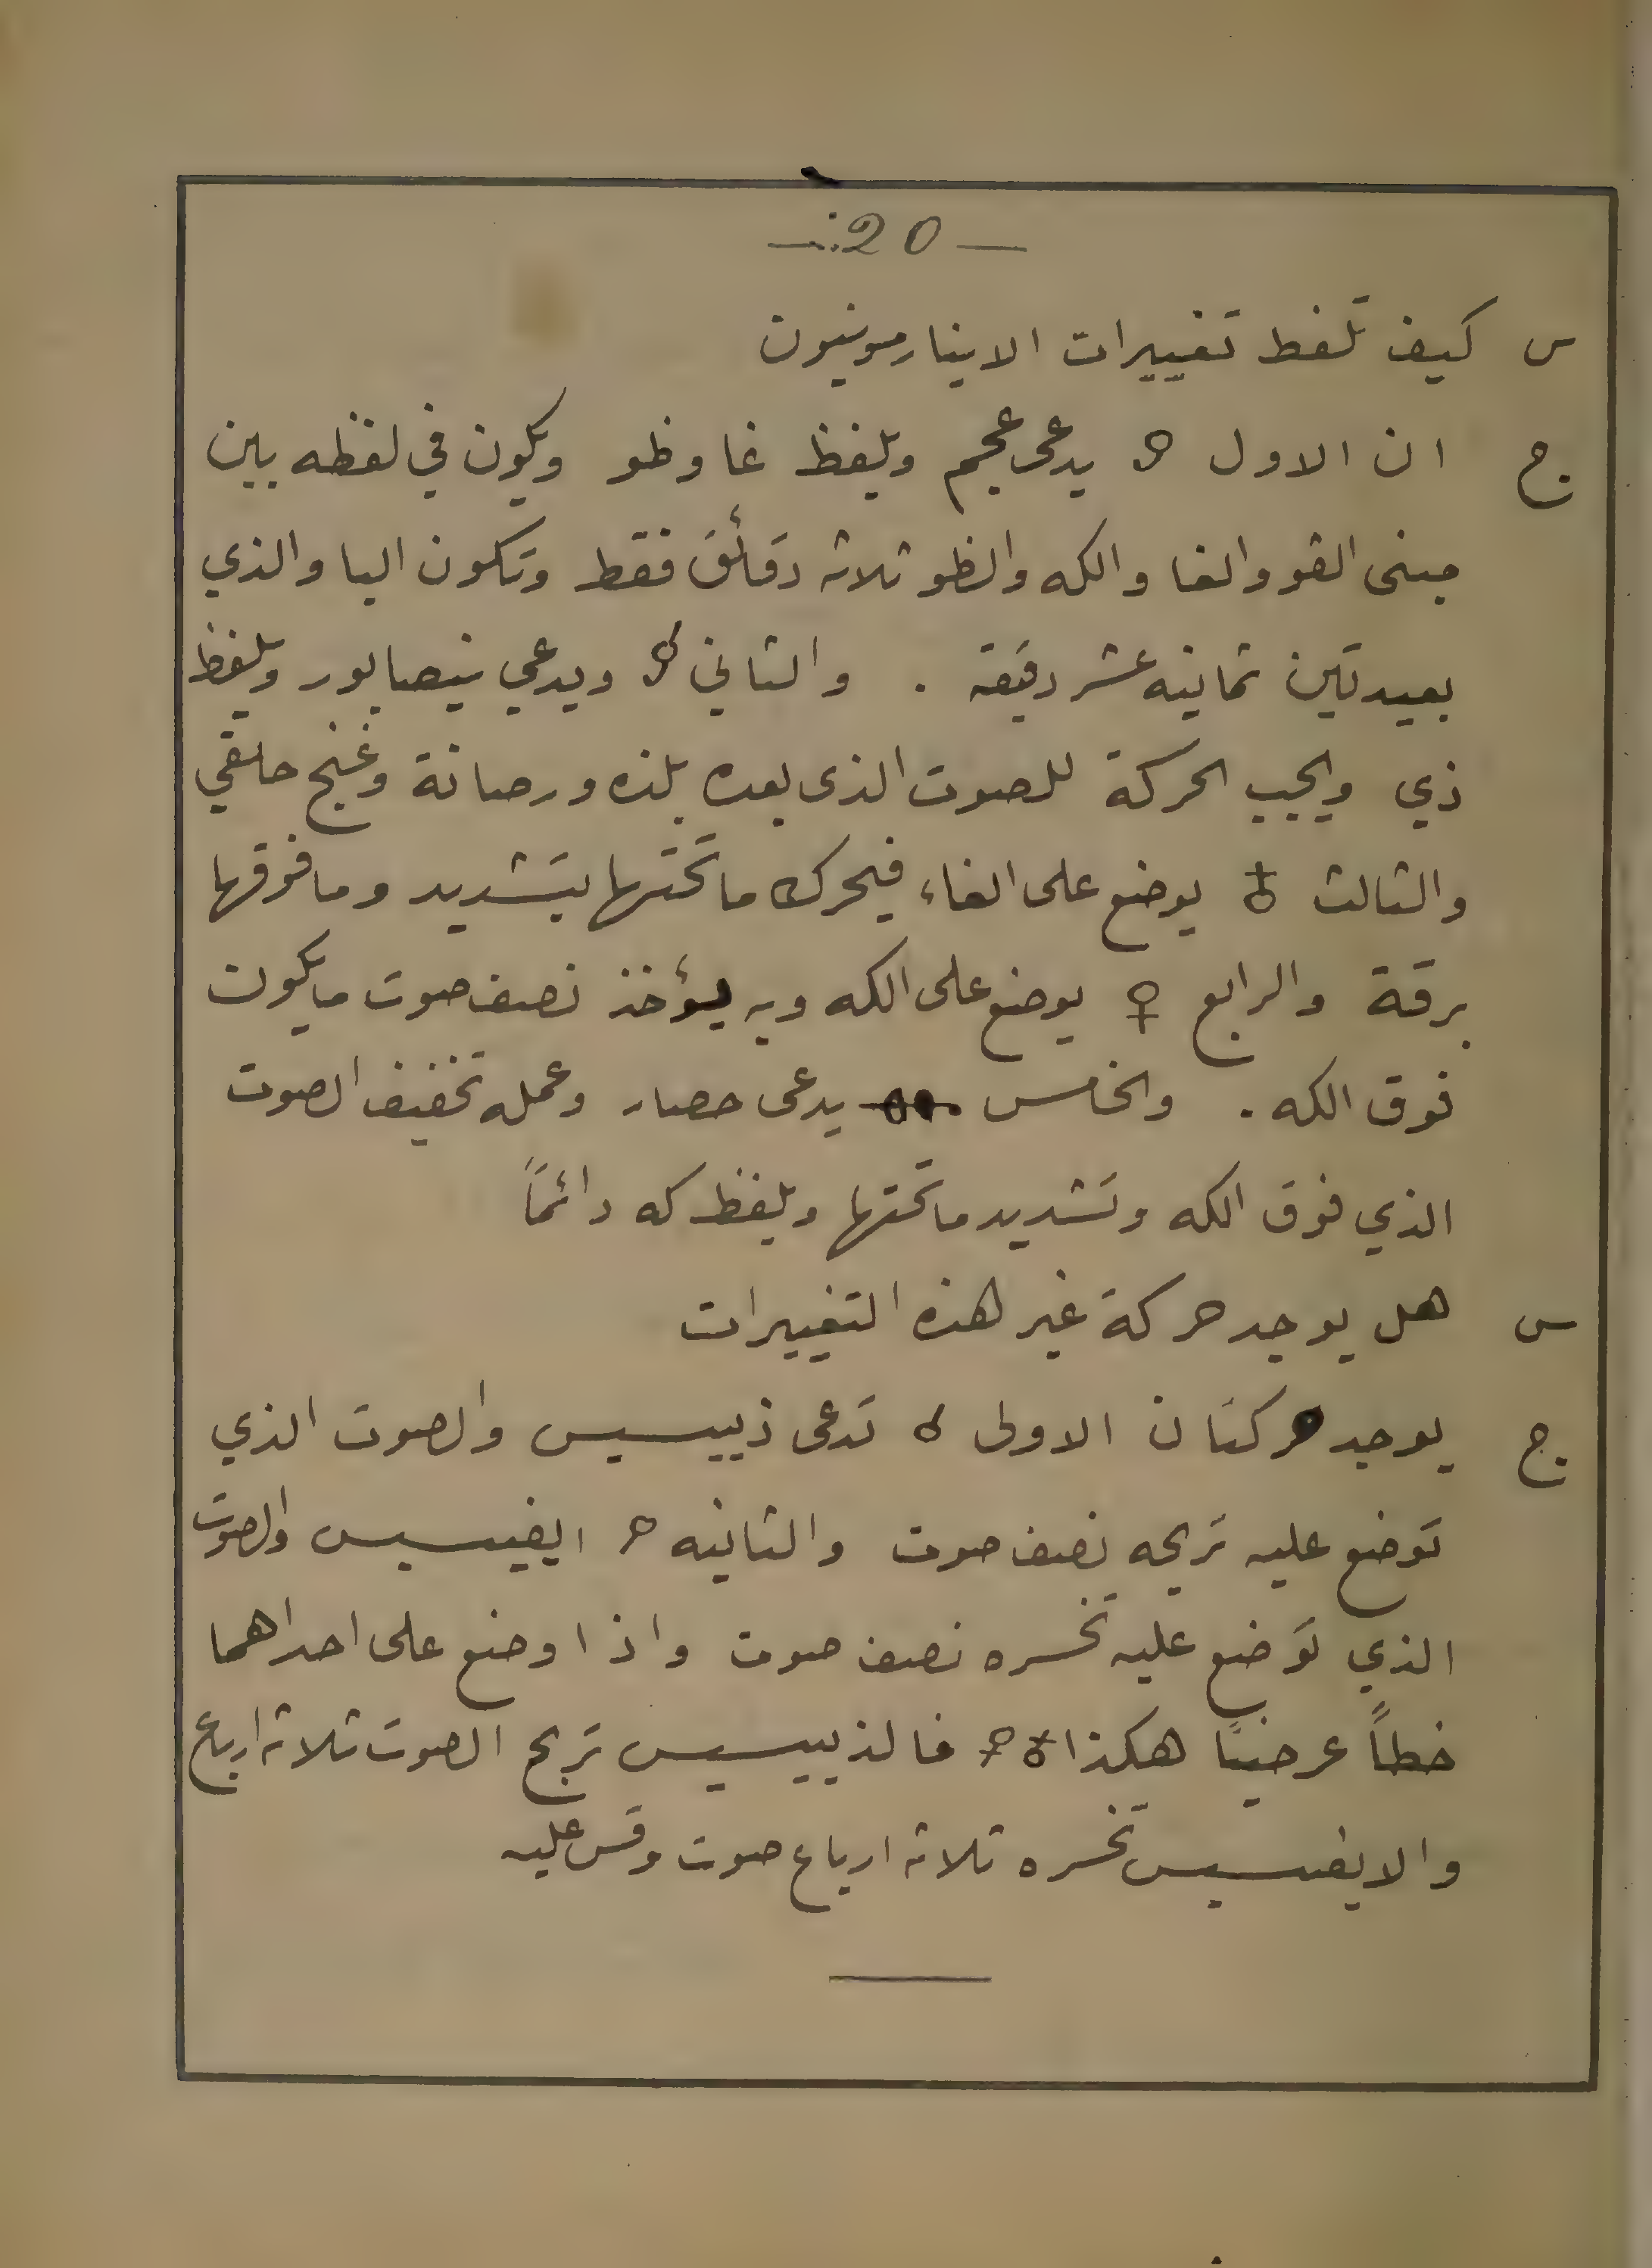 20
س كيف تلفظ تغييرات الاينارمونيون
ج ان الاول يدعى عجم ويلفظ غا وظو ويكون في لفظه بين
جنى القو والغا والكه والظو ثلاثه دقائق فقط وتكون اليا والذي
بعيدتين ثمانيه عشر دقيقه . والثاني ويدعي نيصابور ويلفظ
ذي ويجب الحركة للصوت الذى بعده بلذه ورصانة وغنج حلقي
والثالث يوضع على الغاء فيحرك ما تحتها بتشديد وما فوقها
برقة والرابع يوضع على الكه وبه يؤخذ نصف صوت مايكون
فوق الكه . والخامس يدعى حصار وعمله تخفيف الصوت
الذي فوق الكه وتشديد ماتحتها ويلفظ كه دائماً
س هل يوجد حركة غير هذه التغييرات
ج يوجد حركتان الاولى تدعى ذييسيس والصوت الذي
توضع عليه تربحه نصف صوت والثانيه ايفيسيس والصوت
الذي توضع عليه تخسره نصف صوت واذا وضع على احداهما
خطاً عرضيًا هكذا فالذييسيس تربح الصوت ثلاثه ارباع
والايفيسيس تخسره ثلاثه ارباع صوت وقس عليه